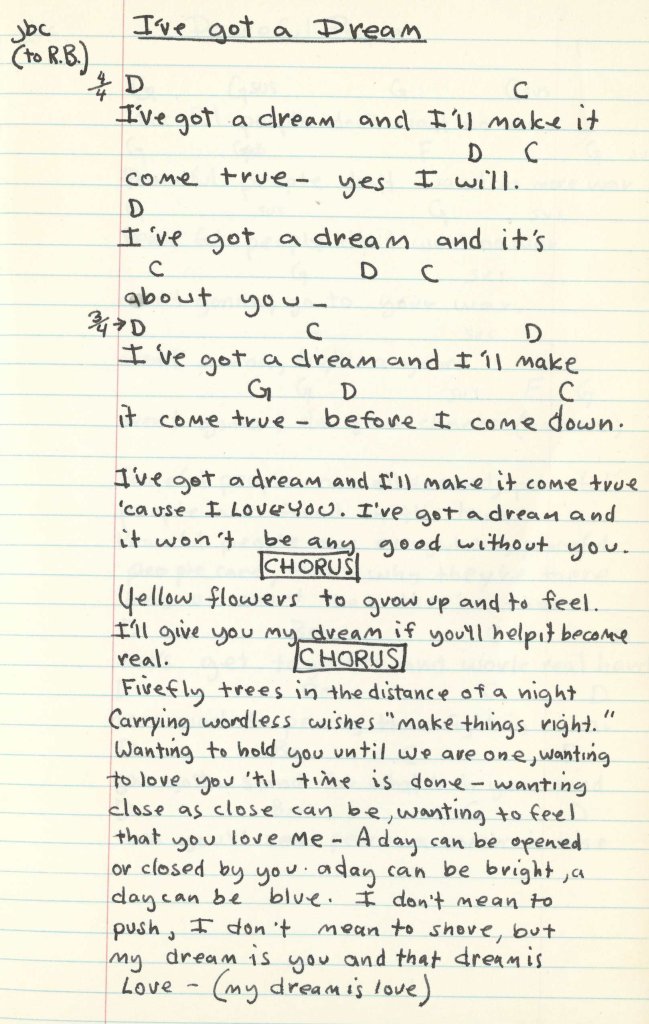 jbc
(to R.B.)
I've got a Dream
4/4 D C
I've got a dream and I'll make it
D C
come true – yes I will.
D
I've got a dream and it's
C D C
about you –
3/4 → D C D
I've got a dream and I'll make
G D C
it come true – before I come down.
I've got a dream and I'll make it come true
'cause I LOVE YOU. I've got a dream and
it won't be any good without you.
CHORUS
Yellow flowers to grow up and to feel.
I'll give you my dream if you'll help it become
real. CHORUS
Firefly trees in the distance of a night
Carrying wordless wishes "make things right."
Wanting to hold you until we are one, wanting
to love you 'til time is done – wanting
close as close can be, wanting to feel
that you love me – A day can be opened
or closed by you. a day can be bright, a
day can be blue. I don't mean to
push, I don't mean to shove, but
my dream is you and that dream is
Love – (my dream is love)